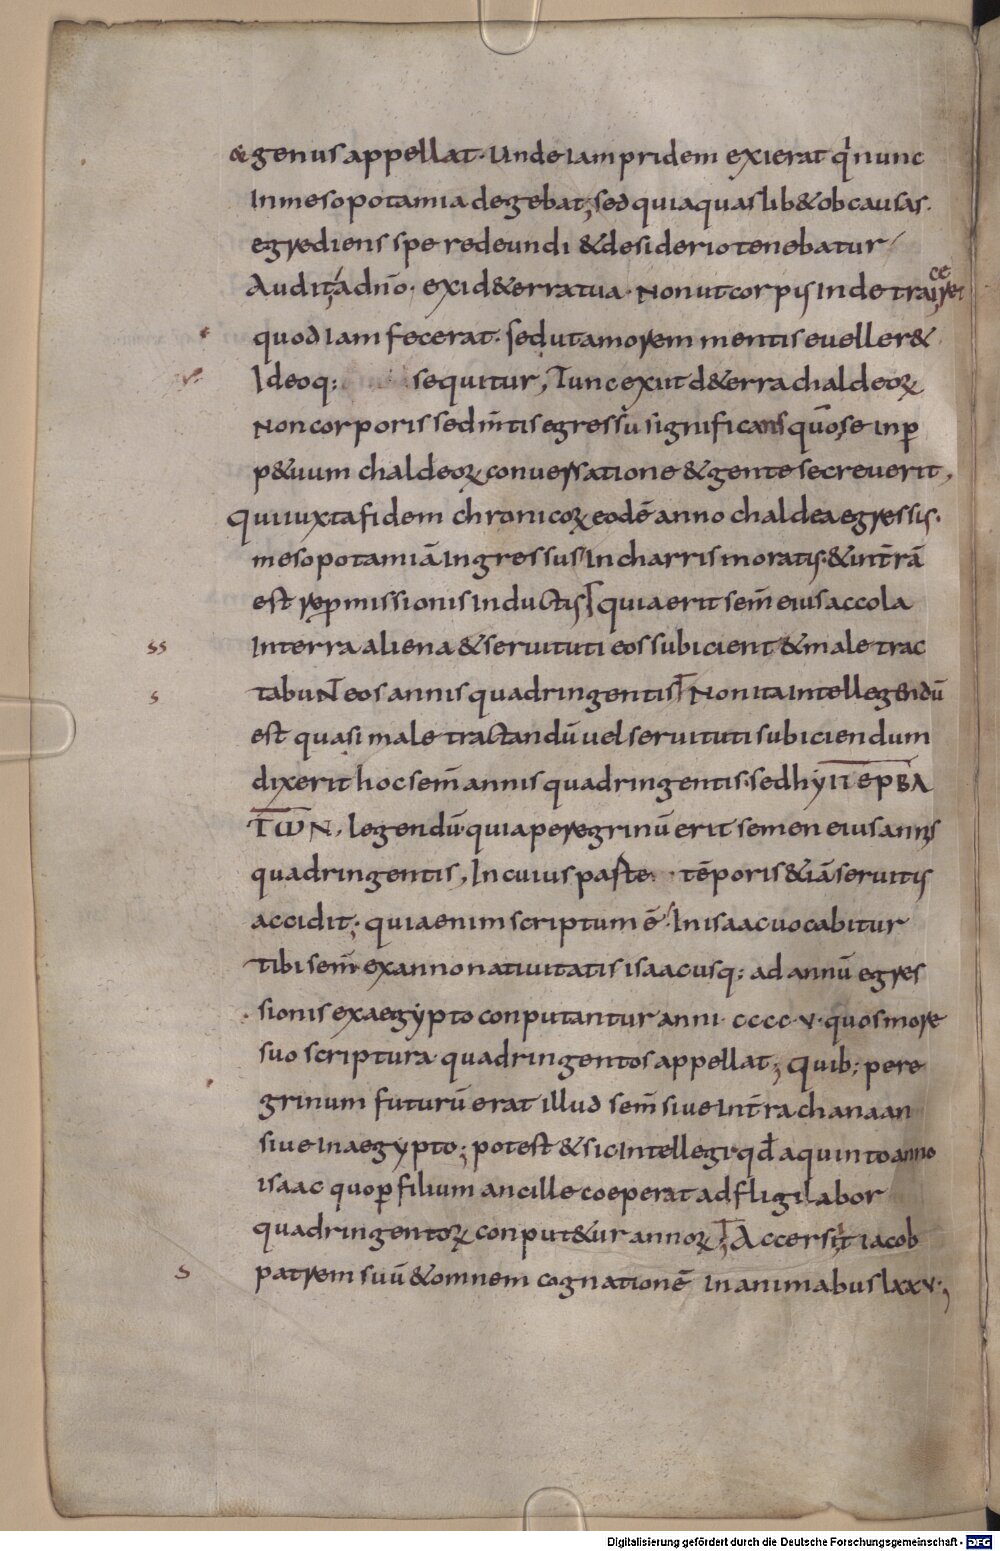 &genus appellat· Unde iampridem exierat q'nunc
Inmesopotamia degebat; sed quiaquaslib&obcausas·
egrediens spe redeundi &desiderio tenebatur
Audit; adnō· exid&erratua· Nonutcorpis Inde
quod Iam fecerat· sedutamorem mentis eueller&
Ideoq: sequitur, Tunc exiit d&erra chaldeoꝝ
Noncorporis sedm̄tis egressū significans quōse inꝑ
p&uum chaldeoꝝ conuersatione &gente secreuerit,
Quiiuxtafidem chronicoꝝ eodē anno chaldea egressis·
mesopotamiā Ingressus In charris moratis·&int̄rā
est reꝑmissionis Inductis quia erit sem̄ eius accola
Interra aliena &seruituti eos subicient &male trac
tabuNT eos annis quadringentis Nonita Intellegendū
est quasi male tractandū uel seruituti subiciendum
dixerit hoc sem̄ annis quadringentis· sed hyΠEPBA
TωN, legendū quia peregrinū erit semen eius annis
quadringentis, In cuius parte tēporis &iā seruitis
accidit; quia enim scriptum ē· In isaac uocabitur
tibi sem̄· ex anno natiuitatis isaac usq: ad annū egres
sionis ex aegypto conputantur anni· cccc·v· quos more
suo scriptura quadringentos appellat; Quib; pere
grinum futurū erat illud sem̄ siue Int̄ra chanaan
siue In aegypto; potest &sic Intellegi qđ aquinto anno
isaac quo ꝑ filium ancille coeperat adfligi labor
quadringentoꝝ conput&ur annoꝝ; Accersit iacob
patrem suū &omnem cognationē In animabus lxxv·,
ss
s
s
Digitalisierung gefördert durch die Deutsche Forschungsgemeinschaft - DFG